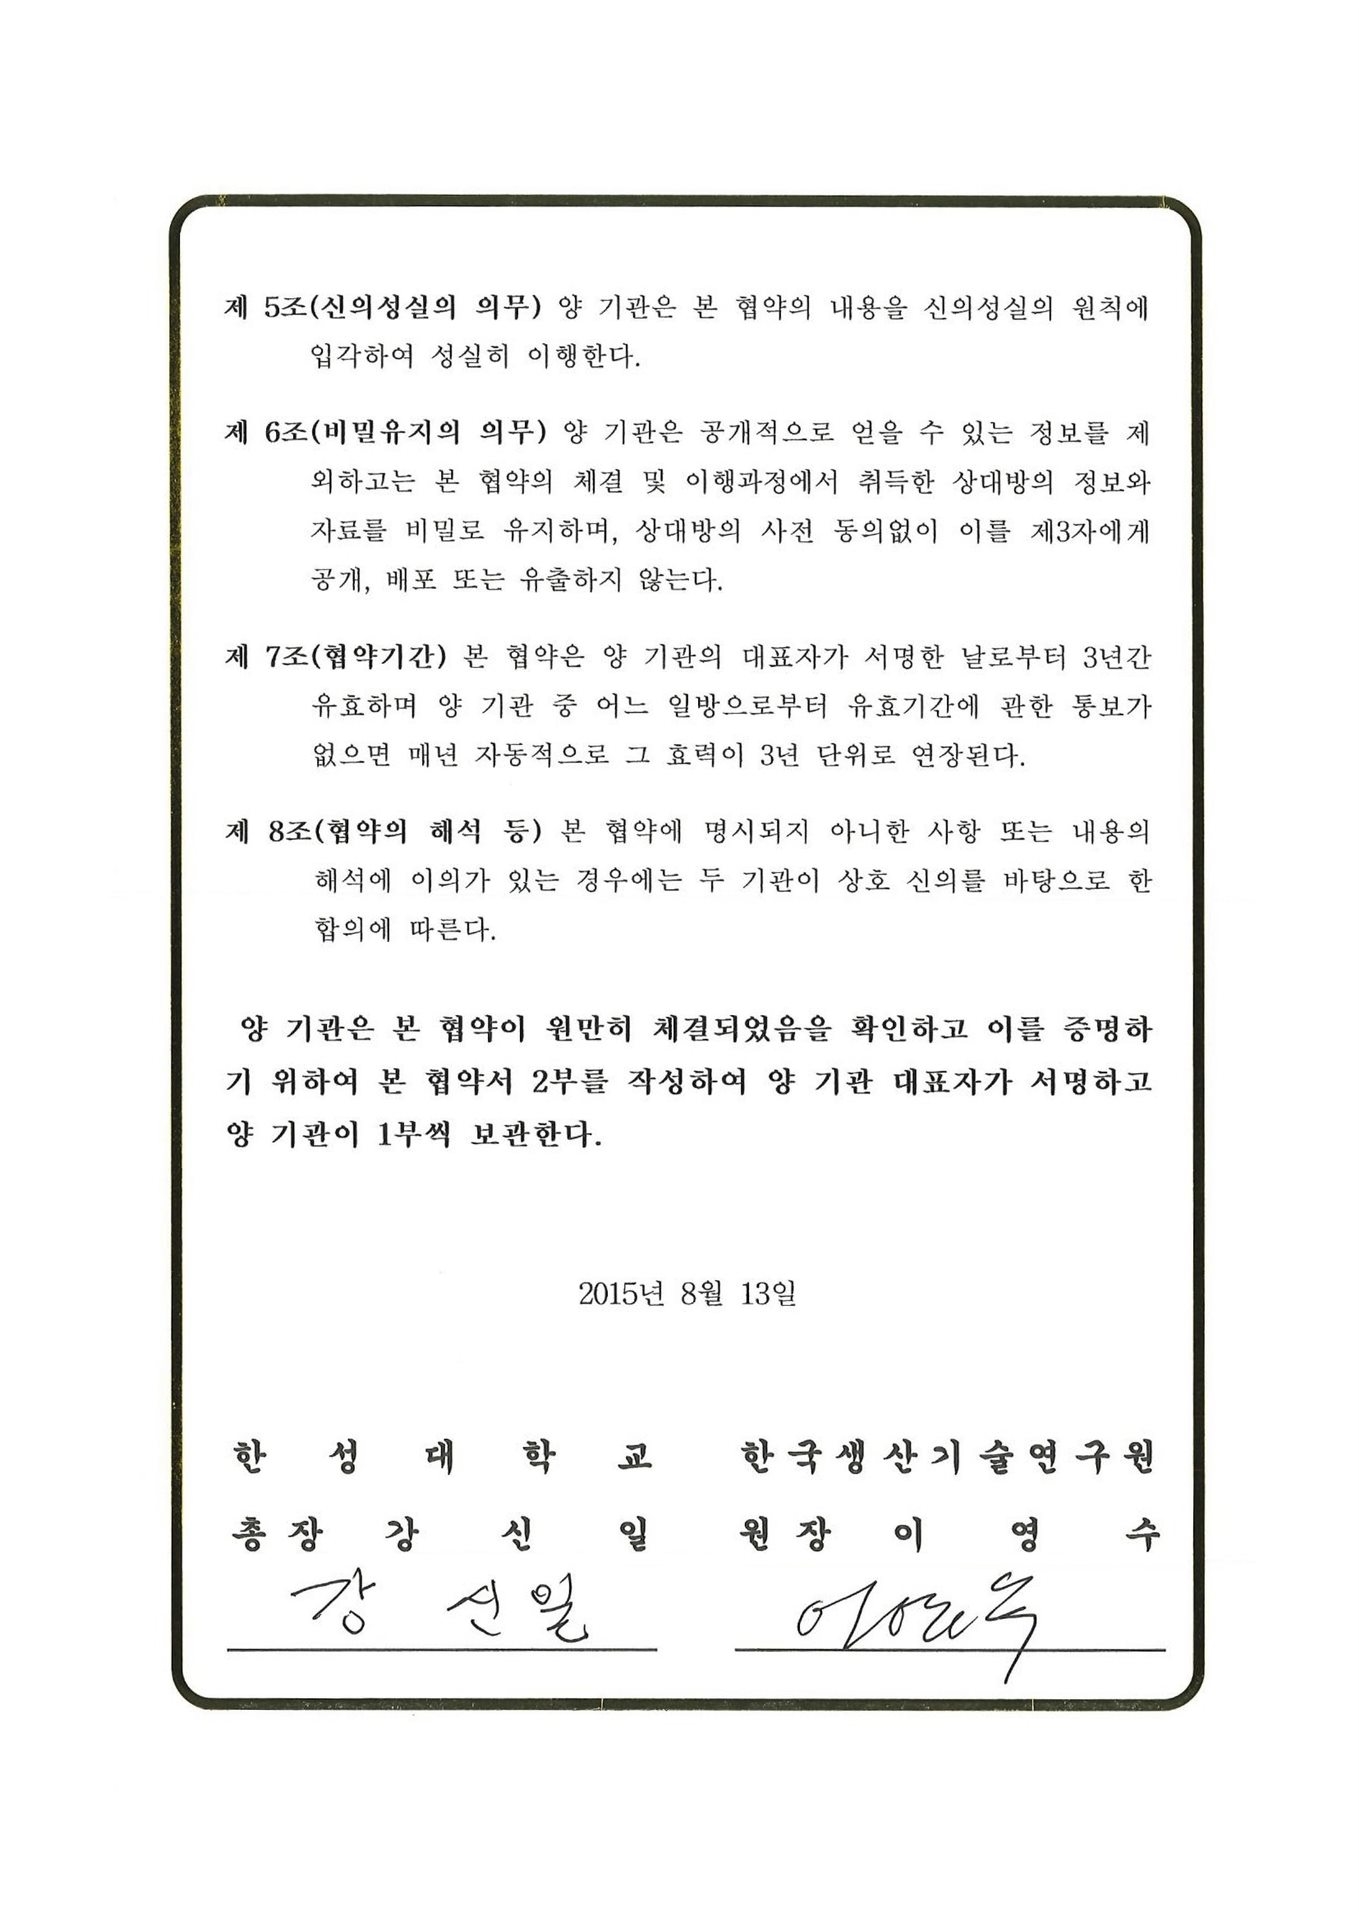 제 5조(신의성실의 의무) 양 기관은 본 협약의 내용을 신의성실의 원칙에
입각하여 성실히 이행한다.
제 6조(비밀유지의 의무) 양 기관은 공개적으로 얻을 수 있는 정보를 제
외하고는 본 협약의 체결 및 이행과정에서 취득한 상대방의 정보와
자료를 비밀로 유지하며, 상대방의 사전 동의없이 이를 제3자에게
공개, 배포 또는 유출하지 않는다.
제 7조(협약기간) 본 협약은 양 기관의 대표자가 서명한 날로부터 3년간
유효하며 양 기관 중 어느 일방으로부터 유효기간에 관한 통보가
없으면 매년 자동적으로 그 효력이 3년 단위로 연장된다.
제 8조(협약의 해석 등) 본 협약에 명시되지 아니한 사항 또는 내용의
해석에 이의가 있는 경우에는 두 기관이 상호 신의를 바탕으로 한
합의에 따른다.
양 기관은 본 협약이 원만히 체결되었음을 확인하고 이를 증명하
기 위하여 본 협약서 2부를 작성하여 양 기관 대표자가 서명하고
양 기관이 1부씩 보관한다.
2015년 8월 13일
한 성 대 학 교 한국생산기술연구원
총장 강 신 일 원장 이 영 수
강 신일 이영수